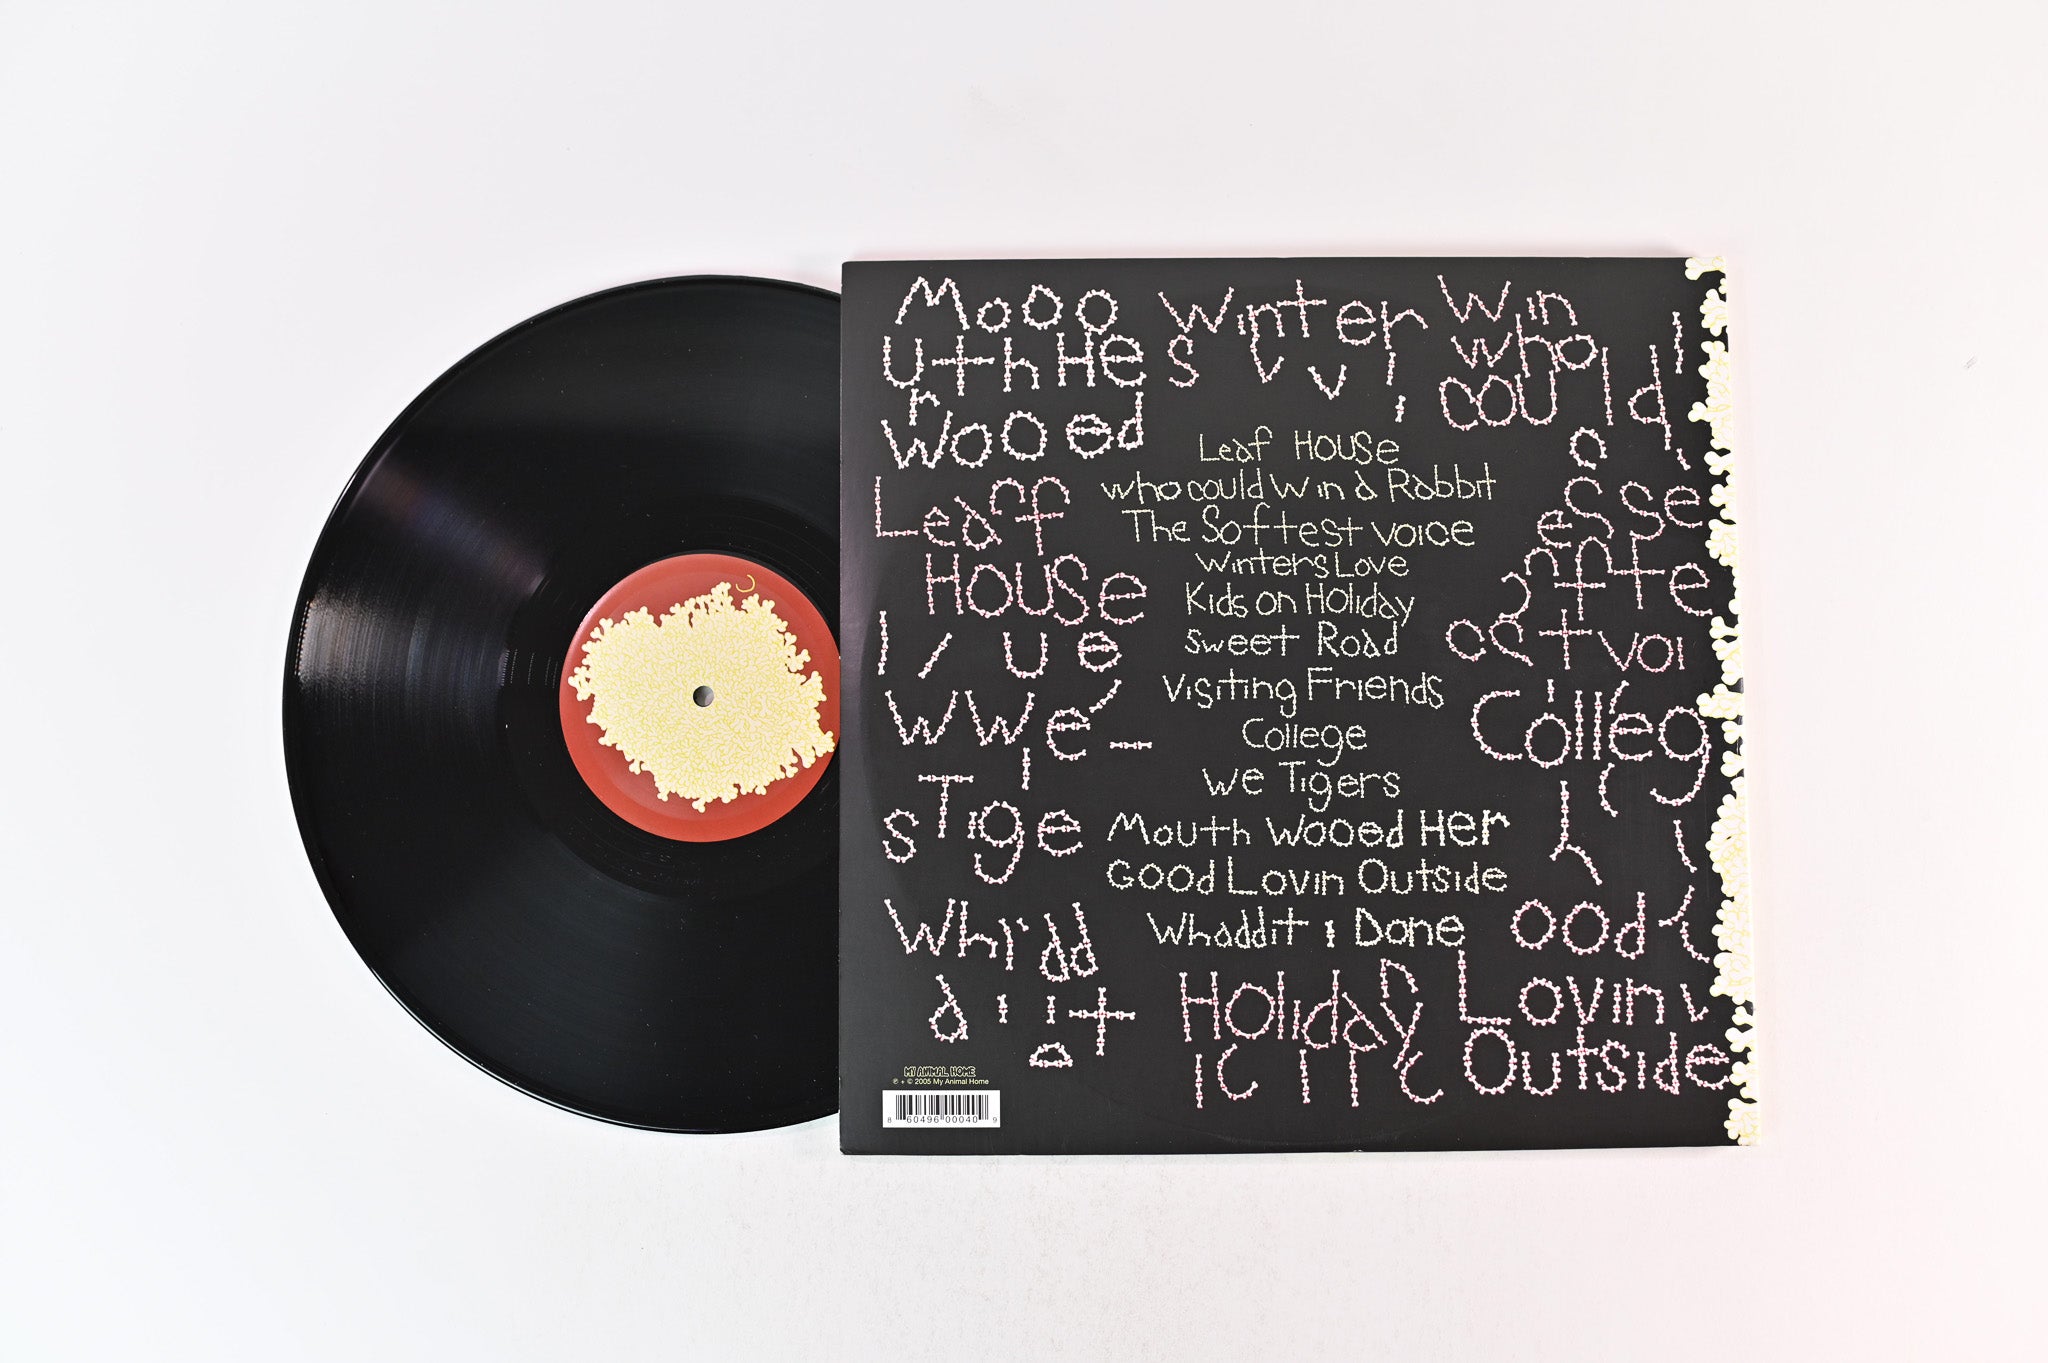 Mooo
uth He
r
wooed
Winter
s v v i
Win
who
could
Leaf
House
Leaf House
who could win a Rabbit
The Softest voice
Winters Love
Kids on Holiday
Sweet Road
Visiting Friends
College
We Tigers
Mouth Wooed Her
Good Lovin Outside
Whaddit I Done
ue
WWe'
sTige
Colleg
Whidd
ood
Holiday
Lovin
Outside
MY ANIMAL HOME
℗ + © 2005 My Animal Home
8 60496 00040 9